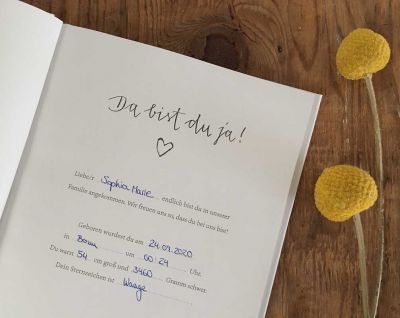 Da bist du ja!
♡
Liebe/r Sophia Marie endlich bist du in unserer
Familie angekommen. Wir freuen uns so, dass du bei uns bist!
Geboren wurdest du am 24.09.2020
in Bonn um 00:24 Uhr.
Du warst 54 cm groß und 3460 Gramm schwer.
Dein Sternzeichen ist Waage